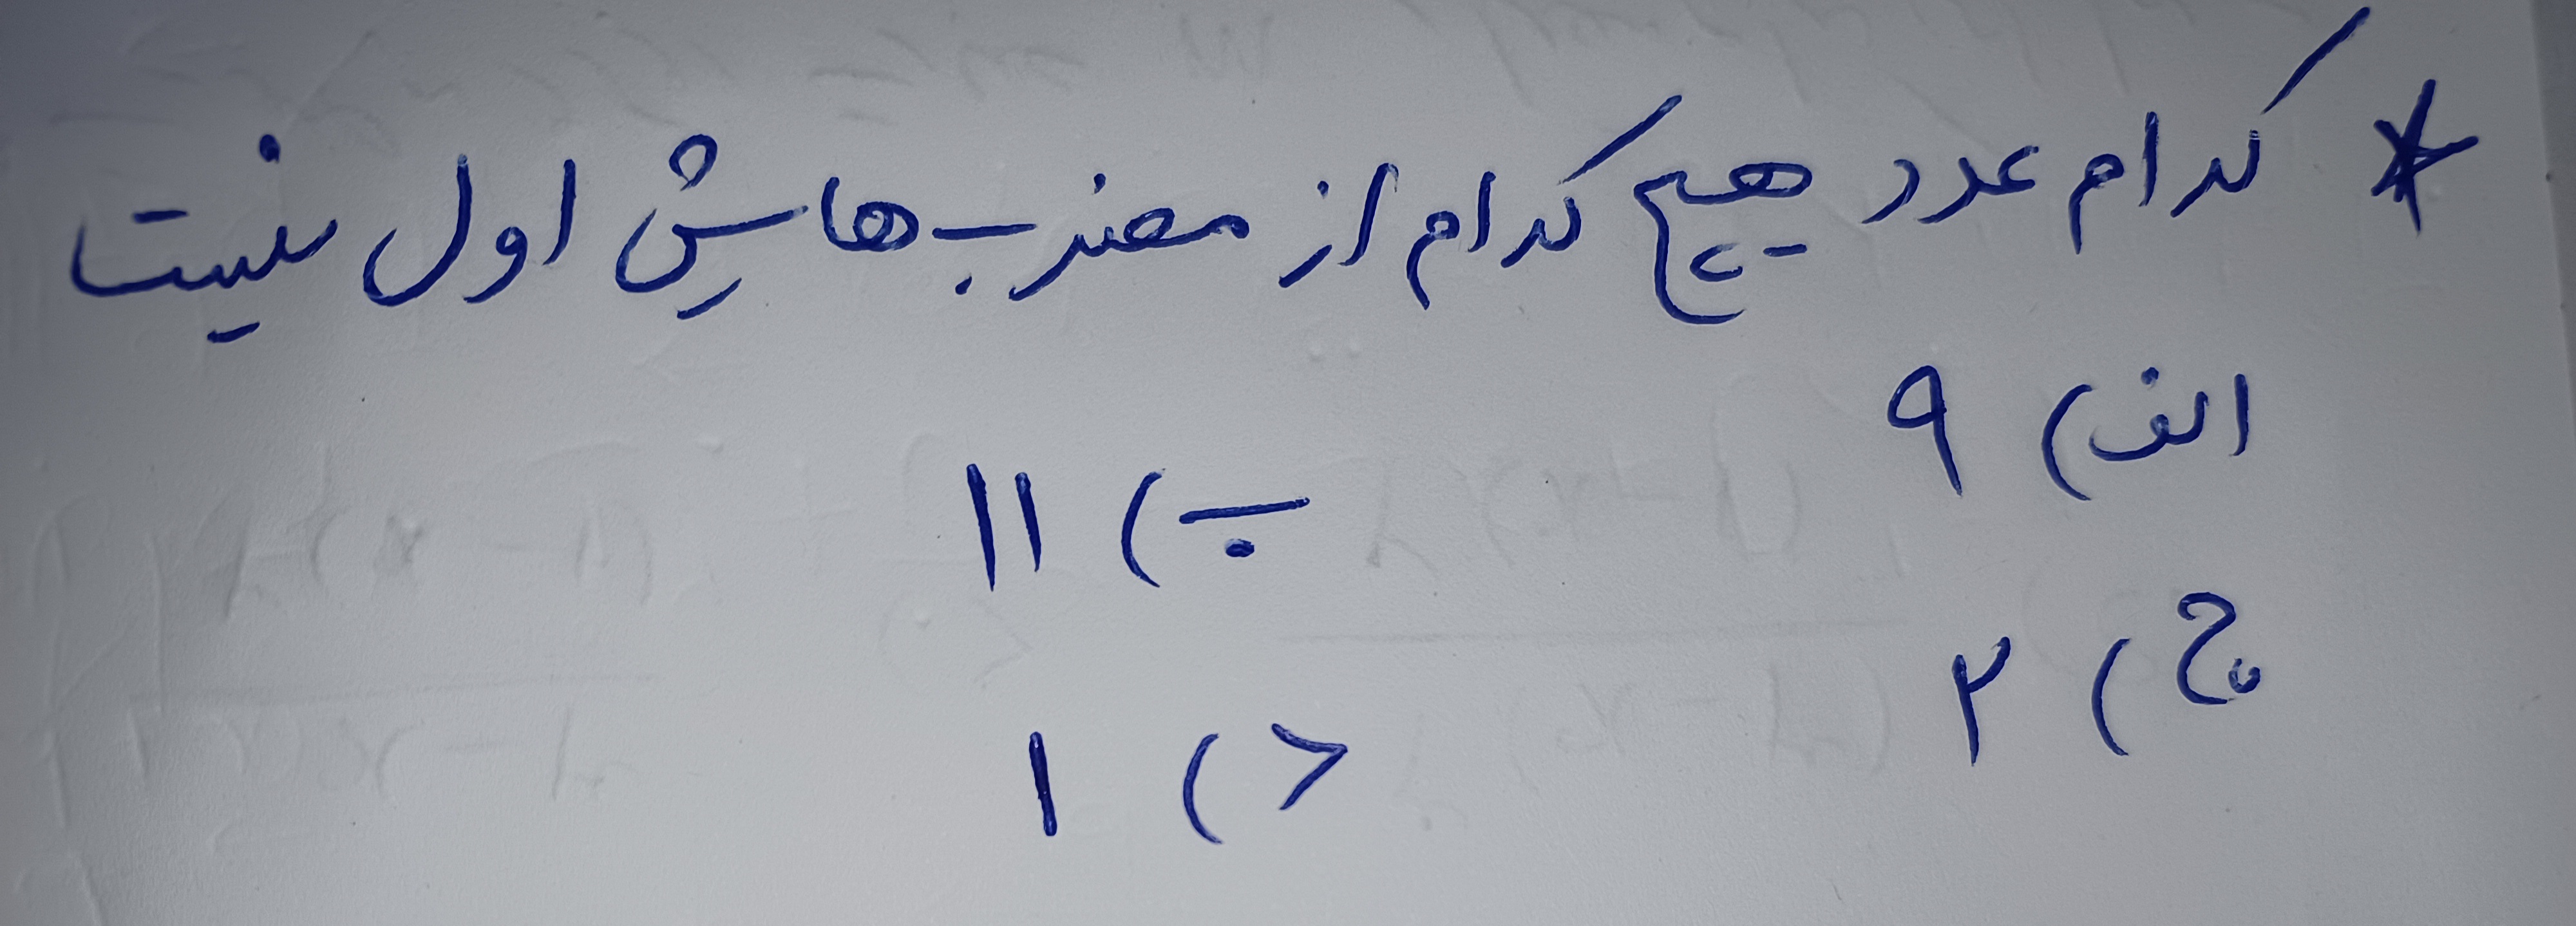 * کدام عدد هیچ کدام از مضرب‌هایش اول نیست
الف) ۹
ب) ۱۱
ج) ۲
د) ۱